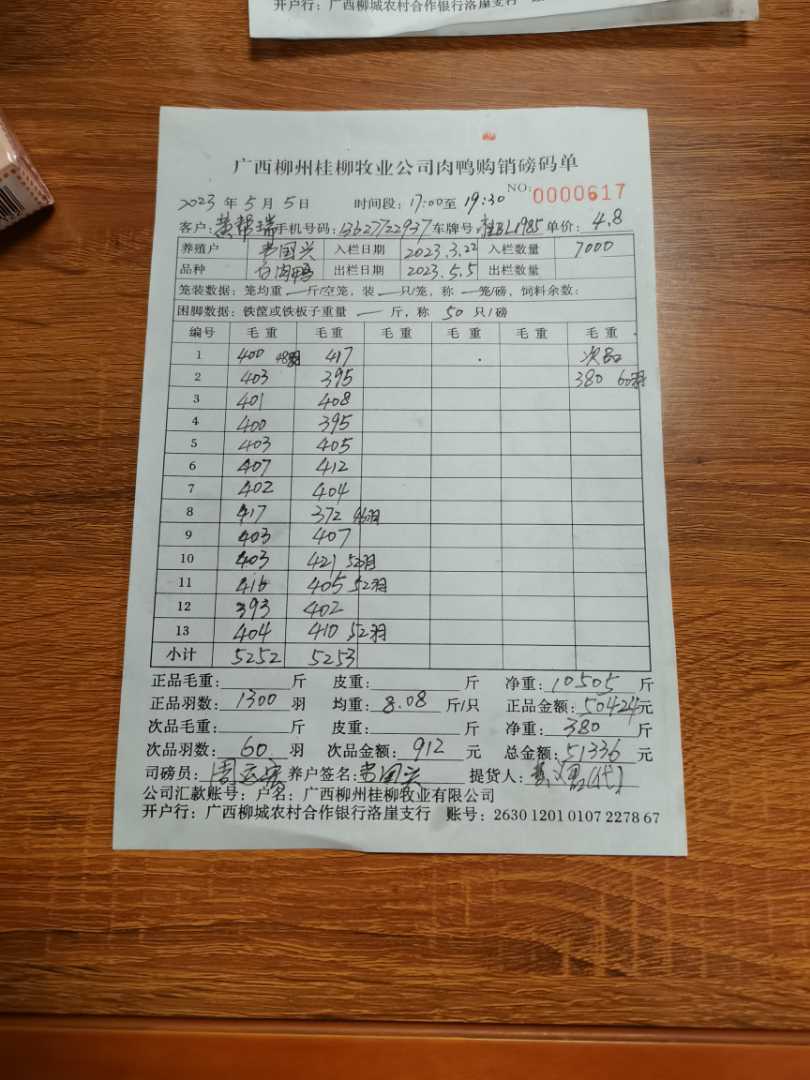 开户行：广西柳城农村合作银行洛崖支行
广西柳州桂柳牧业公司肉鸭购销磅码单
NO: 0000617
2023 年 5 月 5 日 时间段：17:00 至 19:30
客户：黄帮瑞 手机号码：13627722937 车牌号：桂BL1985 单价：4.8
养殖户 韦国兴 入栏日期 2023.3.22 入栏数量 7000
品种 白肉鸭 出栏日期 2023.5.5 出栏数量
笼装数据：笼均重 — 斤/空笼，装 — 只/笼，称 — 笼/磅，饲料余数：
困脚数据：铁筐或铁板子重量 — 斤，称 50 只/磅
编号 毛重 毛重 毛重 毛重 毛重 毛重
1 400 48羽 417 次品
2 403 395 380 60羽
3 401 408
4 400 395
5 403 405
6 407 412
7 402 404
8 417 372 46羽
9 403 407
10 403 421 52羽
11 416 405 52羽
12 393 402
13 404 410 52羽
小计 5252 5253
正品毛重： 斤 皮重： 斤 净重：10505 斤
正品羽数：1300 羽 均重：8.08 斤/只 正品金额：50424 元
次品毛重： 斤 皮重： 斤 净重：380 斤
次品羽数：60 羽 次品金额：912 元 总金额：51336 元
司磅员： 养户签名：韦国兴 提货人： (代)
公司汇款账号：户名：广西柳州桂柳牧业有限公司
开户行：广西柳城农村合作银行洛崖支行 账号：2630 1201 0107 2278 67